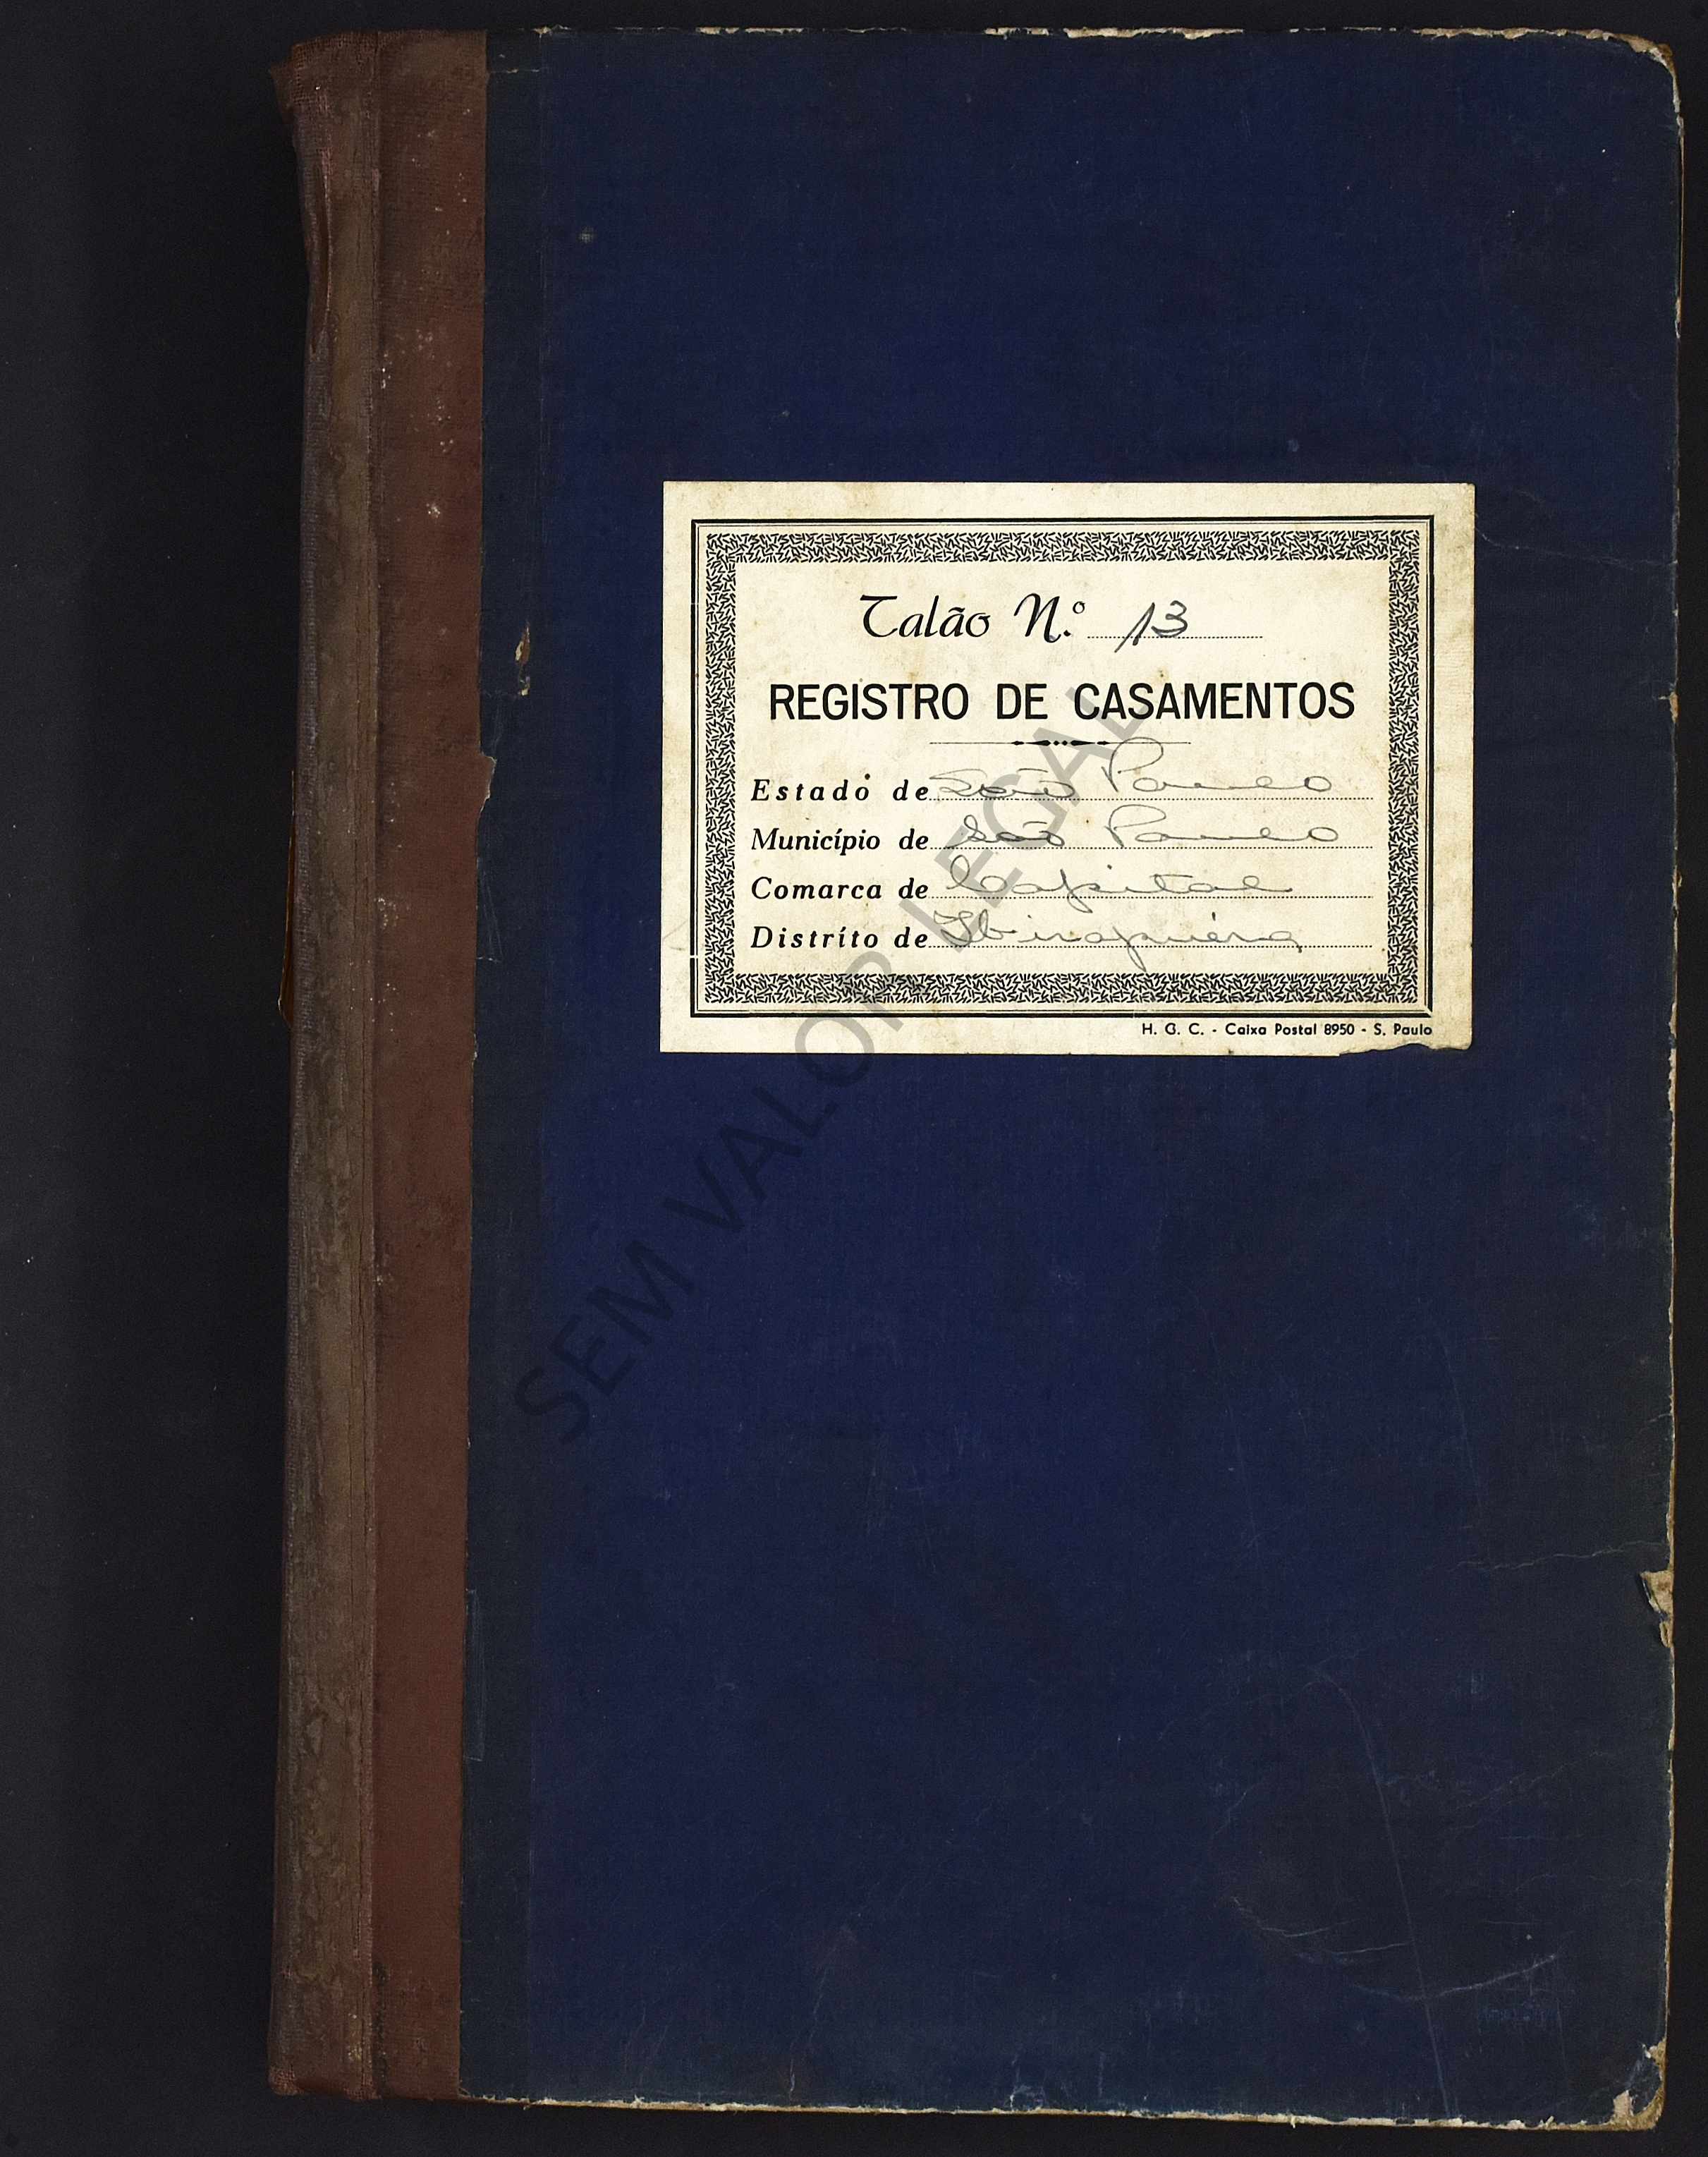 Talão N.º 13
REGISTRO DE CASAMENTOS
Estado de São Paulo
Município de São Paulo
Comarca de Capital
Distríto de Ibirapuéra
H. G. C. - Caixa Postal 8950 - S. Paulo
SEM VALOR LEGAL